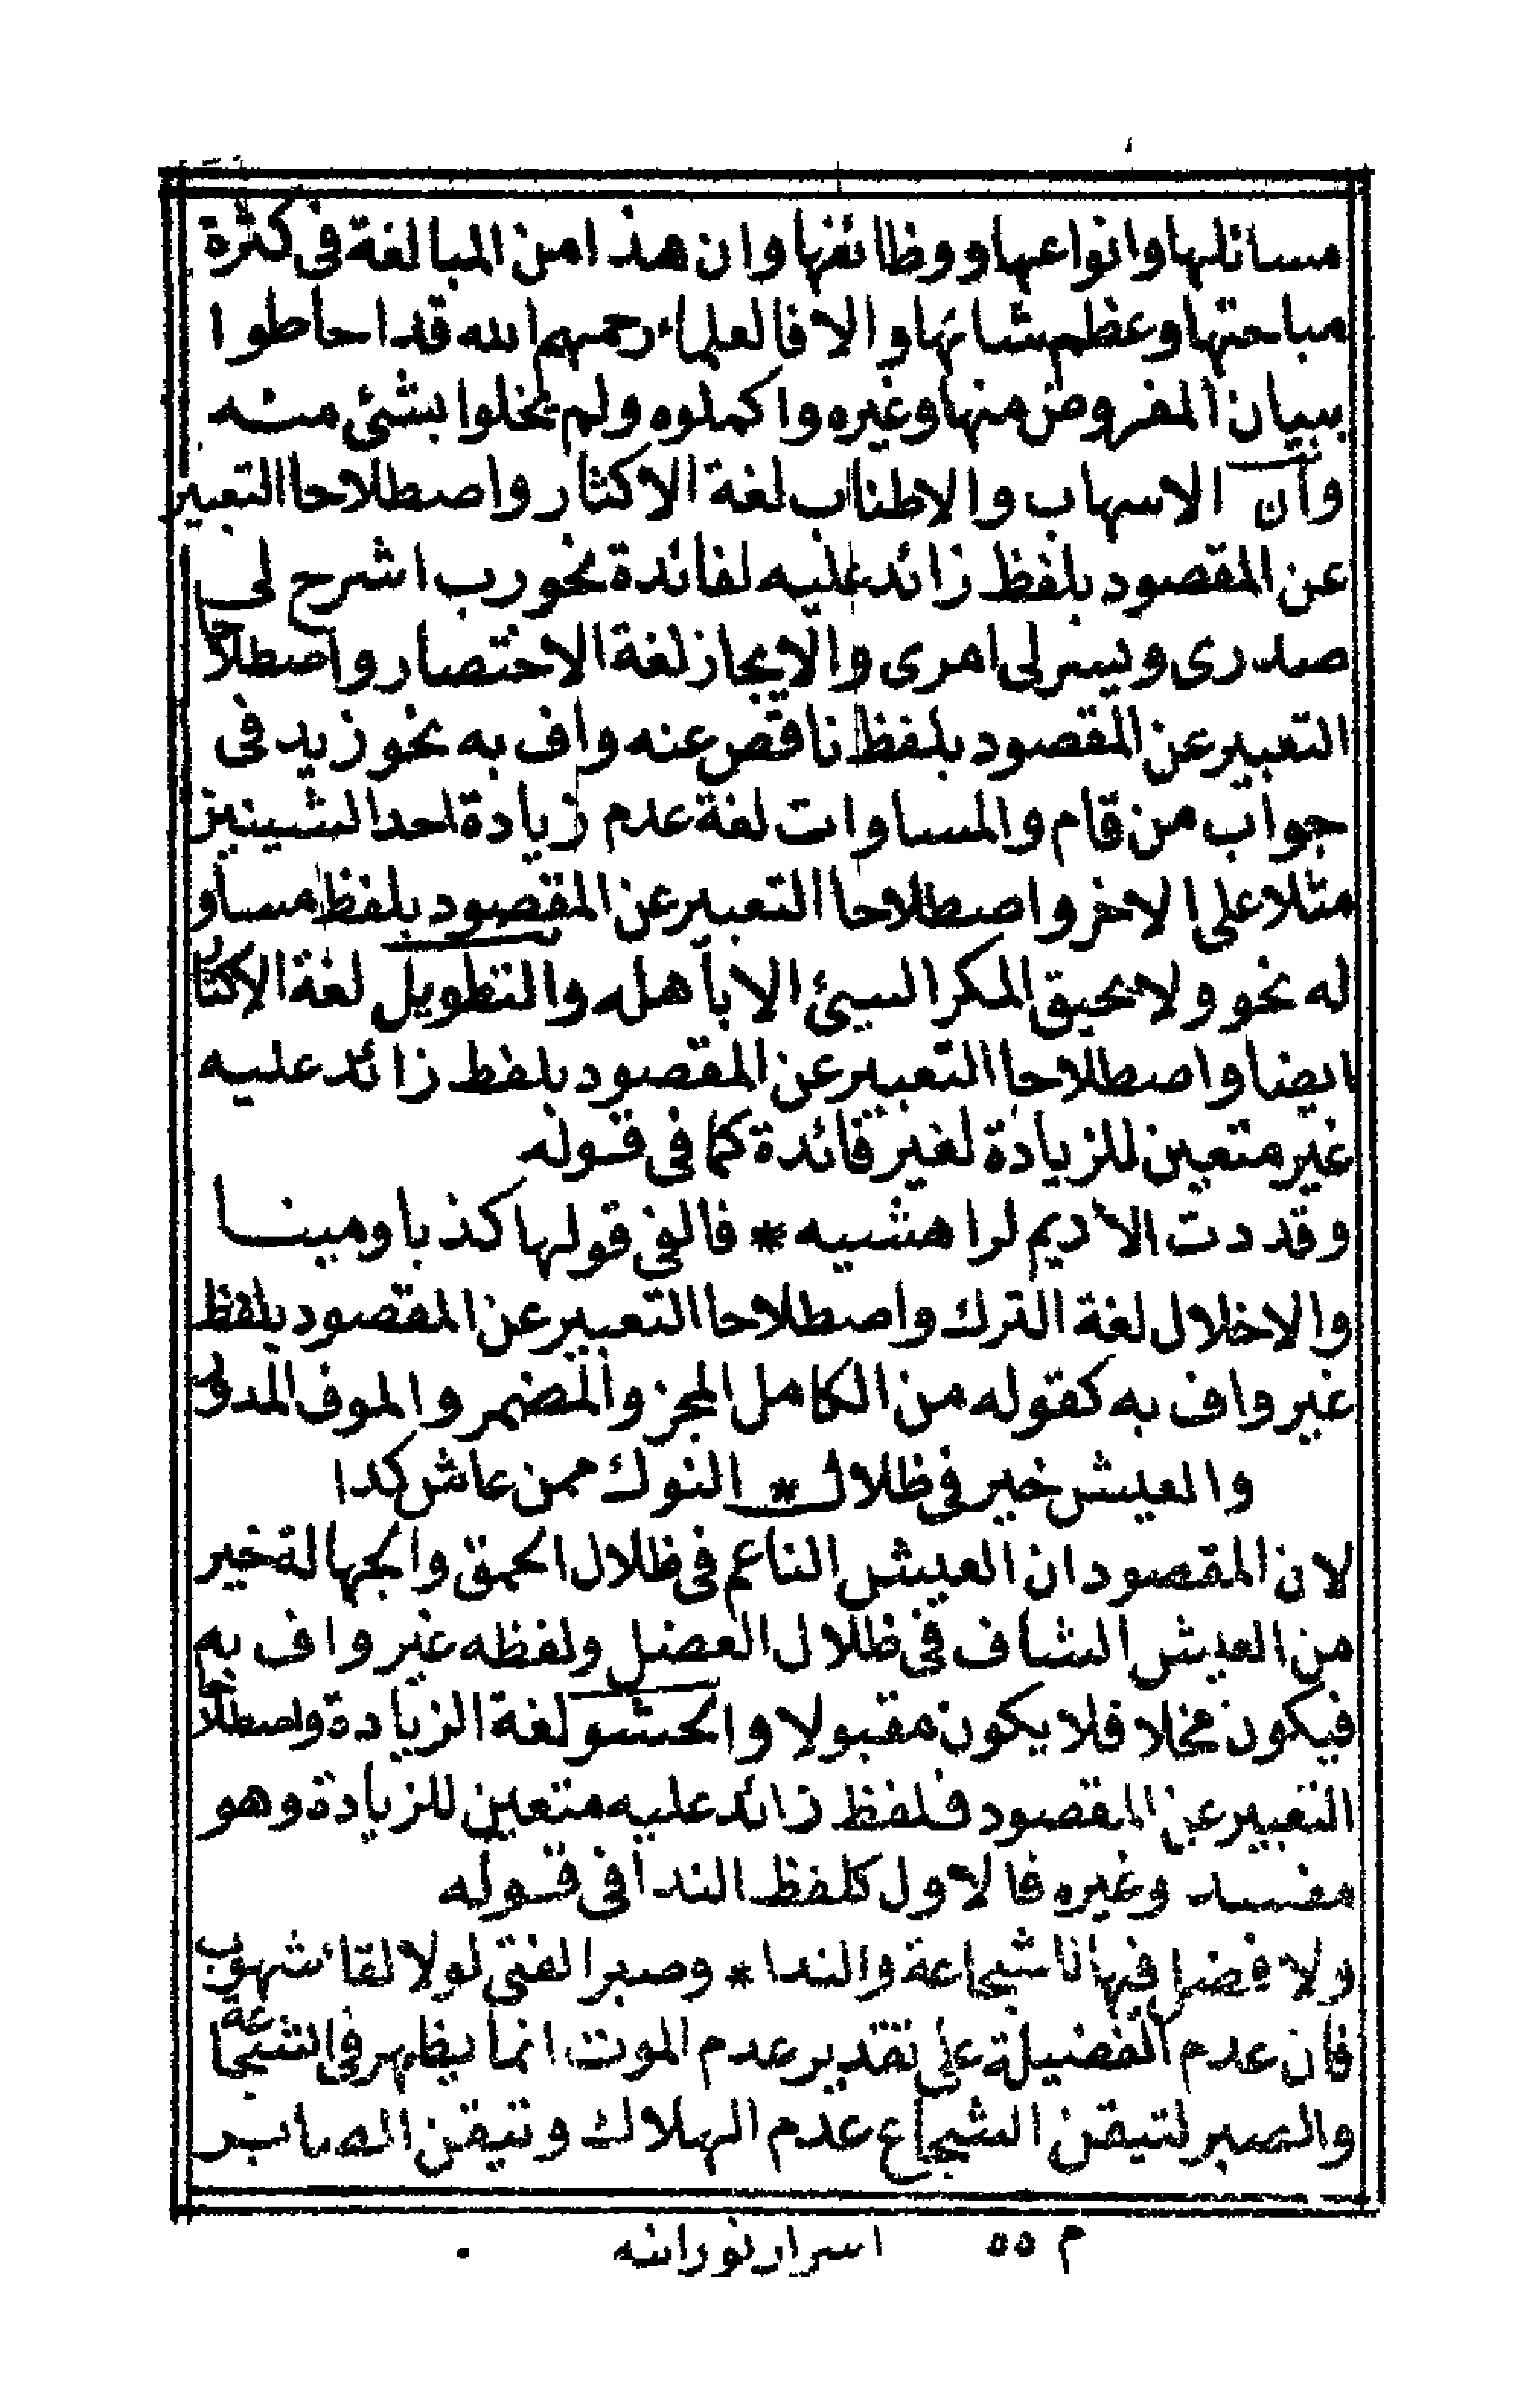 مسائلها وانواعها ووظائفها وان هذا من المبالغة فى كثرة
مباحثها وعظم شانها والا فالعلماء رحمهم الله قد احاطوا
ببيان المفروض منها وغيره واكملوه ولم يخلوا بشئ منه
وان الاسهاب والاطناب لغة الاكثار واصطلاحا التعبير
عن المقصود بلفظ زائد عليه لفائدة نحو رب اشرح لى
صدرى ويسر لى امرى والايجاز لغة الاختصار واصطلاحا
التعبير عن المقصود بلفظ ناقص عنه واف به نحو زيد فى
جواب من قام والمساوات لغة عدم زيادة احد الشيئين
مثلا على الاخر واصطلاحا التعبير عن المقصود بلفظ مساو
له نحو ولا يحيق المكر السيئ الا بأهله والتطويل لغة الاكثار
ايضا واصطلاحا التعبير عن المقصود بلفظ زائد عليه
غير متعين للزيادة لغير فائدة كما فى قوله
وقددت الاديم لراهشيه * فالفى قولها كذبا ومينا
والاخلال لغة الترك واصطلاحا التعبير عن المقصود بلفظ
غير واف به كقوله من الكامل المجز والمضمر والموف المدو
والعيش خير فى ظلال * النوك ممن عاش كدا
لان المقصود ان العيش الناعم فى ظلال الحمق والجهالة خير
من العيش الشاف فى ظلال العضل ولفظه غير واف به
فيكون مخلا فلا يكون مقبولا والحشو لغة الزيادة واصطلاحا
التعبير عن المقصود فلفظ زائد عليه متعين للزيادة وهو
مفسد وغيره فالاول كلفظ الندا فى قوله
ولا فضل فيها ناشجاعة والندا * وصبر الفتى لولا لقاء شهوب
فان عدم الفضيلة على تقدير عدم الموت انما يظهر فى الشجاعة
والصبر لتيقن الشجاع عدم الهلاك وتيقن الصابر
م ٥٥ اسرار نورانيه